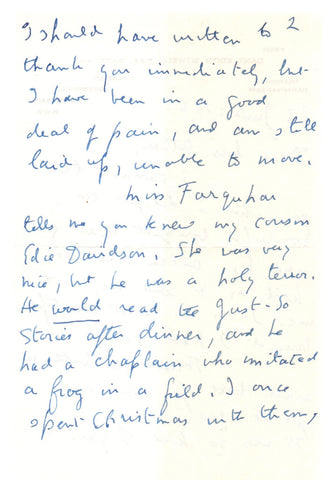 I should have written to 2
thank you immediately, but
I have been in a good
deal of pain, and am still
laid up, unable to move.
Miss Farquhar
tells me you knew my cousin
Edie Davidson. She was very
nice, but he was a holy terror.
He would read the Just-So
Stories after dinner, and he
had a chaplain who imitated
a frog in a field. I once
spent Christmas with them,